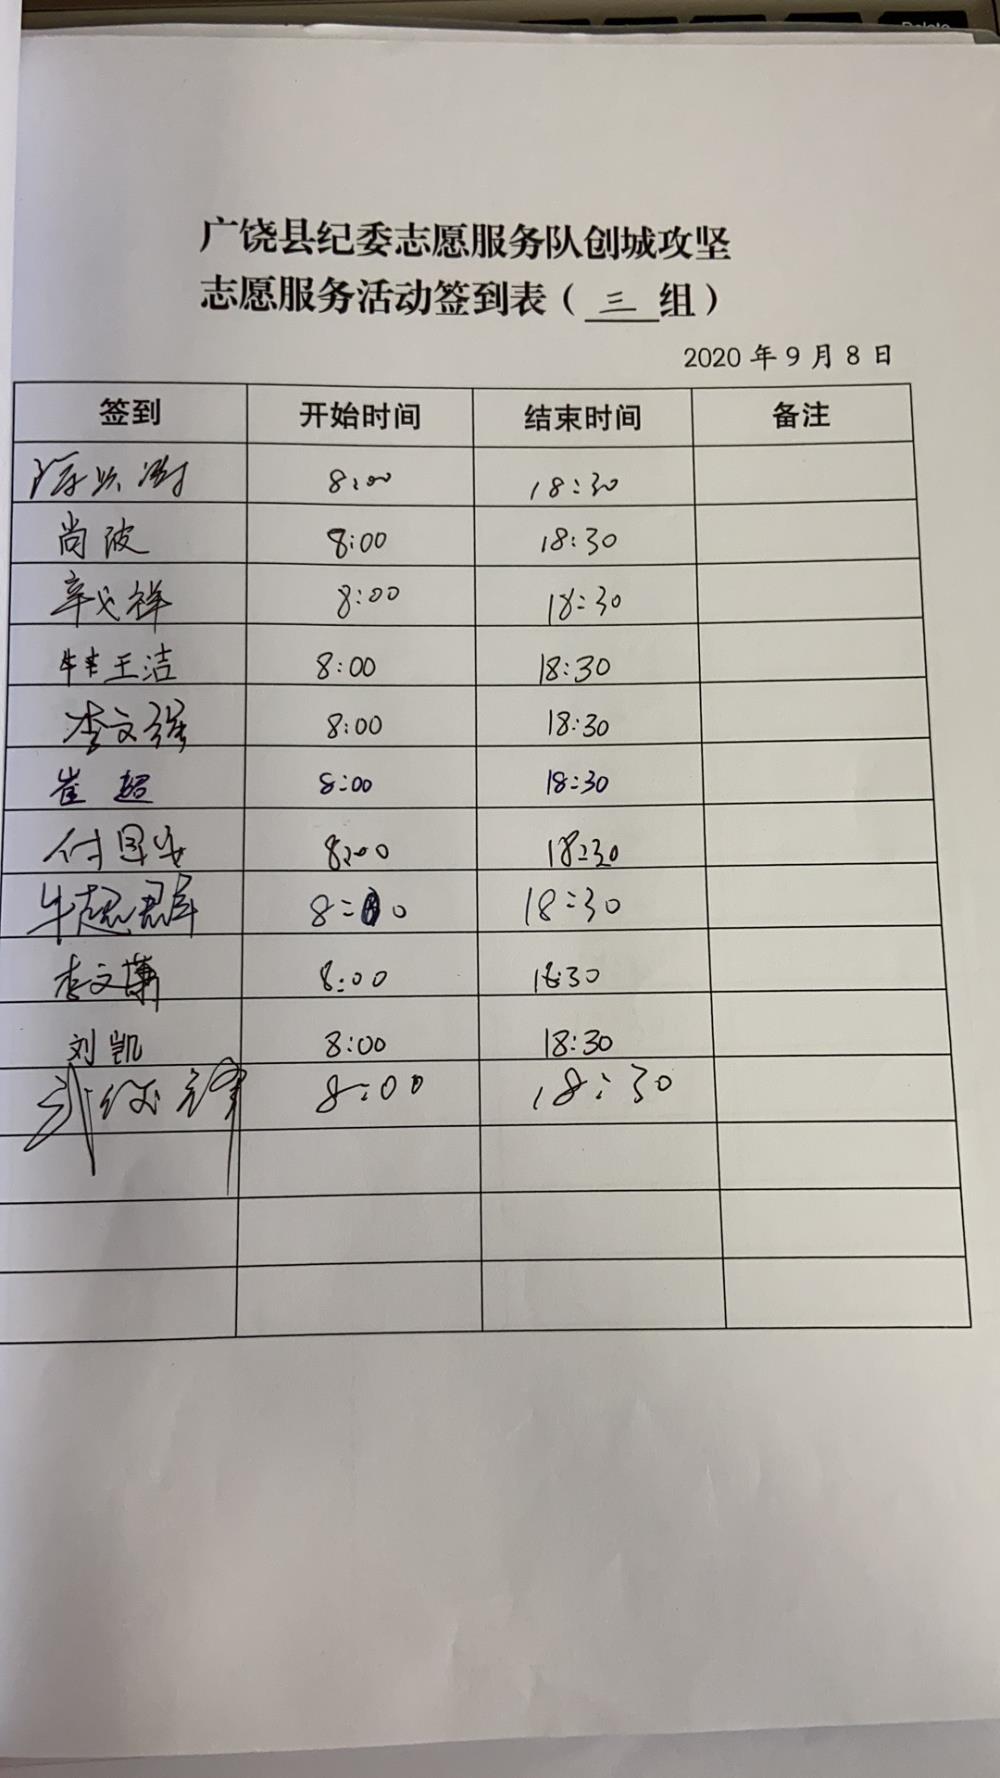 广饶县纪委志愿服务队创城攻坚
志愿服务活动签到表（三组）
2020年9月8日
签到 开始时间 结束时间 备注
8:00 18:30
尚波 8:00 18:30
8:00 18:30
王洁 8:00 18:30
李文强 8:00 18:30
崔超 8:00 18:30
8:00 18:30
8:00 18:30
李文 8:00 18:30
刘凯 8:00 18:30
8:00 18:30